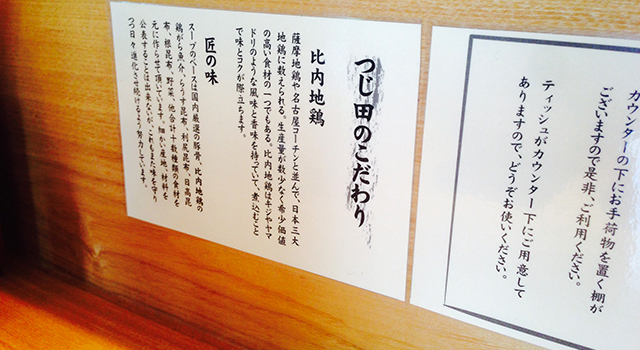 カウンターの下にお手荷物を置く棚が
ございますので是非、ご利用ください。
ティッシュがカウンター下にご用意して
ありますので、どうぞお使いください。
つじ田のこだわり
比内地鶏
薩摩地鶏や名古屋コーチンと並んで、日本三大
地鶏に数えられる。生産量が数少なく希少価値
の高い食材の一つでもある。比内地鶏はキジやヤマ
ドリのような風味と香味を持っていて、煮込むこと
で味とコクが際立ちます。
匠の味
スープのベースは国内厳選の豚骨、比内地鶏の
鶏がら魚介、らうす昆布、利尻昆布、日高昆
布、根昆布、野菜、他合計十数種類の食材を
元に作らせて頂いています。細かい産地、材料を
公表することは出来ないが、これもまた味を守り
つつ日々進化させ続けるよう努力しています。